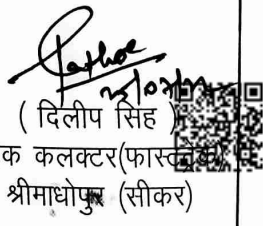 ( दिलीप सिंह )
क कलक्टर(फास्टट्रेक)
श्रीमाधोपुर (सीकर)